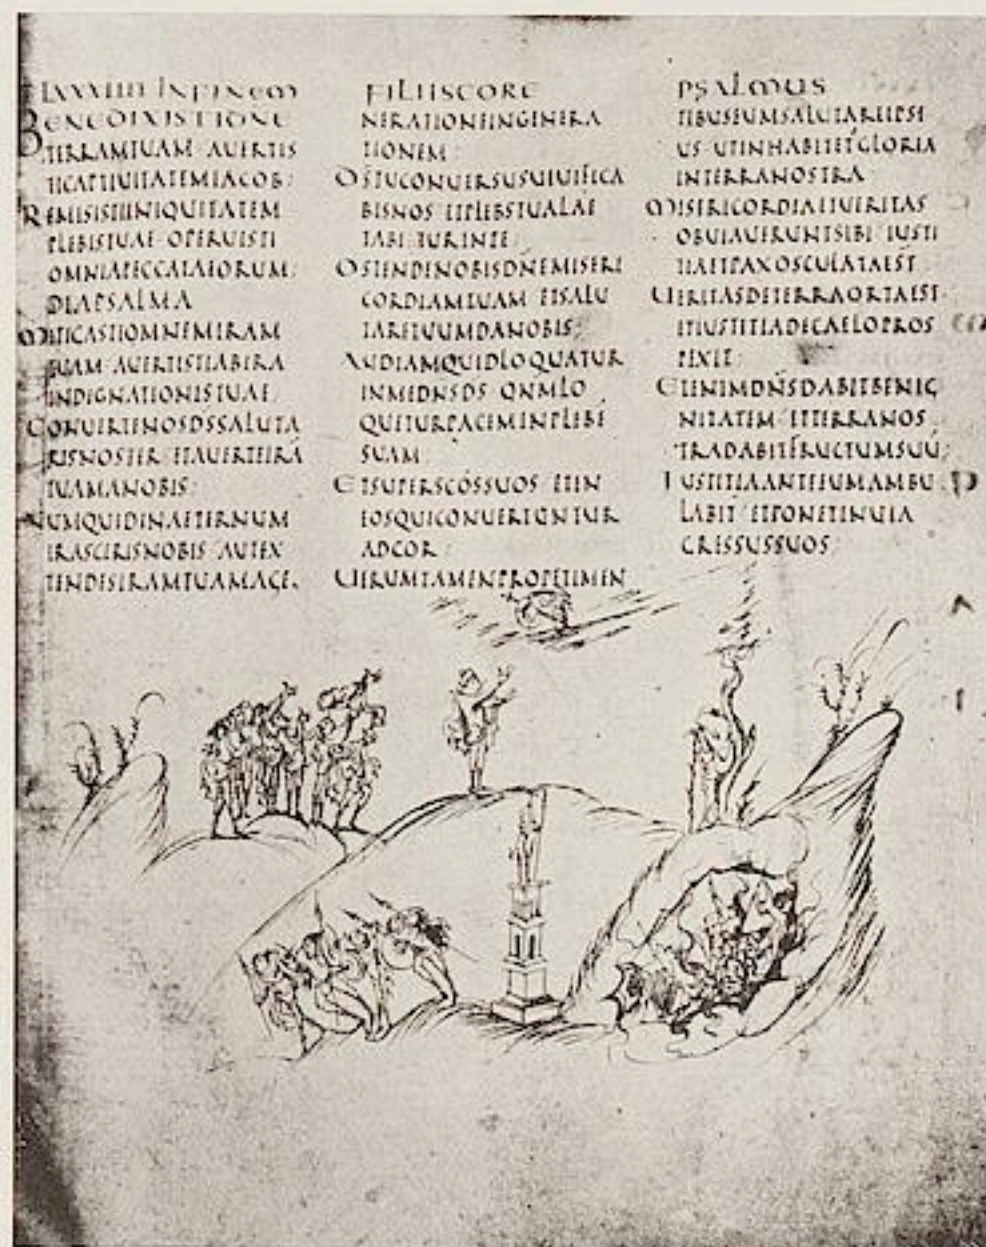 LXXXIIII INFINEM
BENEDIXISTIDNE
TERRAMTUAM AUERTIS
TICAPTIUITATEMIACOB:
REMISISTIINIQUITATEM
PLEBISTUAE OPERUISTI
OMNIAPECCATAEORUM:
DIAPSALMA
MITICASTIOMNEMIRAM
TUAM AUERTISTIABIRA
INDIGNATIONISTUAE
CONUERTENOSDSSALUTA
RISNOSTER ETAUERTEIRA
TUAMANOBIS:
NUMQUIDINAETERNUM
IRASCERISNOBIS AUTEX
TENDESIRAMTUAMAGE.
FILIISCORE
NERATIONEINGINERA
TIONEM:
DSTUCONUERSUSUIUIFICA
BISNOS ETPLEBSTUALAE
TABITURINTE:
OSTENDENOBISDNEMISERI
CORDIAMTUAM ETSALU
TARETUUMDANOBIS:
AUDIAMQUIDLOQUATUR
INMEDNSDS QNMLO
QUETURPACEMINPLEBE
SUAM
ETSUPERSCOSSUOS ETIN
EOSQUICONUERTUNTUR
ADCOR:
UERUMTAMENPROPETIMEN
PSALMUS
TIBUSEUMSALUTAREIPSI
US UTINHABITETGLORIA
INTERRANOSTRA
MISERICORDIAETUERITAS
OBUIAUERUNTSIBI IUSTI
TIAETPAXOSCULATAEST
UERITASDETERRAORTAEST.
ETIUSTITIADECAELOPROS
PEXIT:
ETENIMDNSDABITBENIG
NITATEM ETTERRANOS
TRADABITFRUCTUMSUU:
IUSTITIAANTEEUMAMBU
LABIT ETPONETINUIA
GRESSUSSUOS